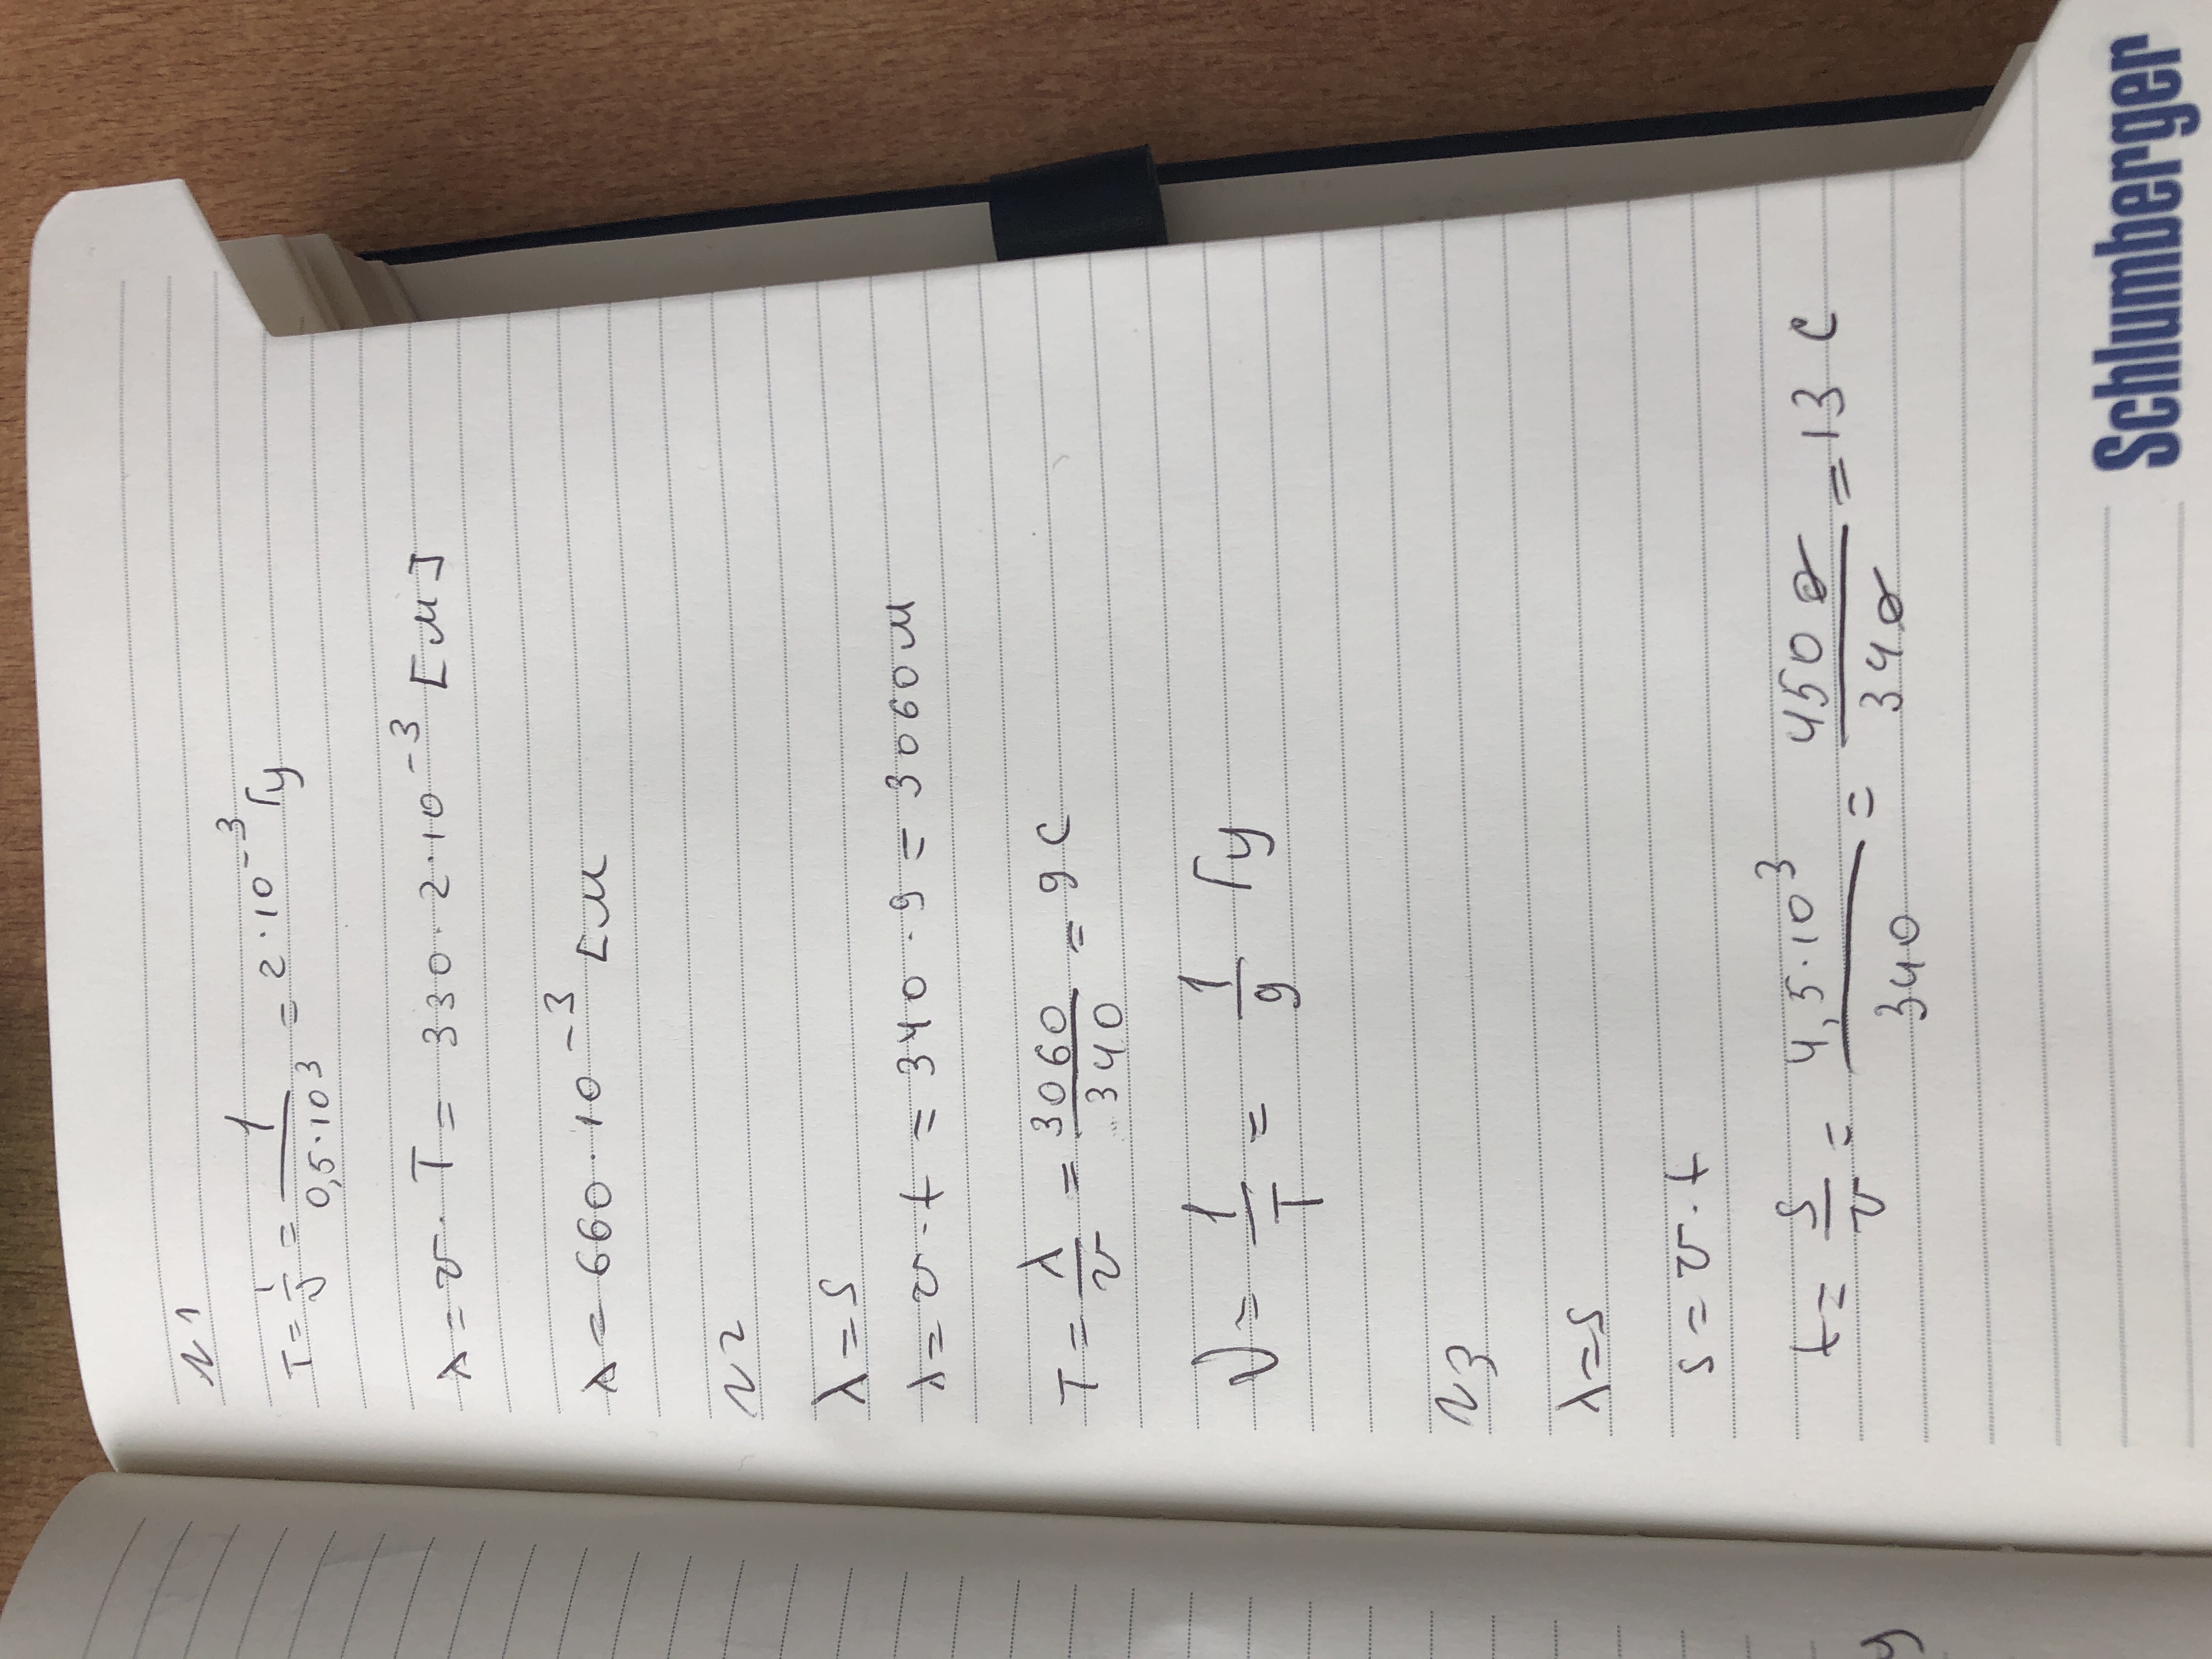 N1
T = 1/ν = 1/0,5·10³ = 2·10⁻³ Гц
λ = v · T = 330 · 2·10⁻³ [м]
λ = 660·10⁻³ [м
N2
λ = S
λ = v · t = 340 · 9 = 3060 м
T = λ/v = 3060/340 = 9 с
ν = 1/T = 1/9 Гц
N3
λ = S
S = v · t
t = S/v = 4,5·10³/340 = 4500/340 = 13 с
Schlumberger